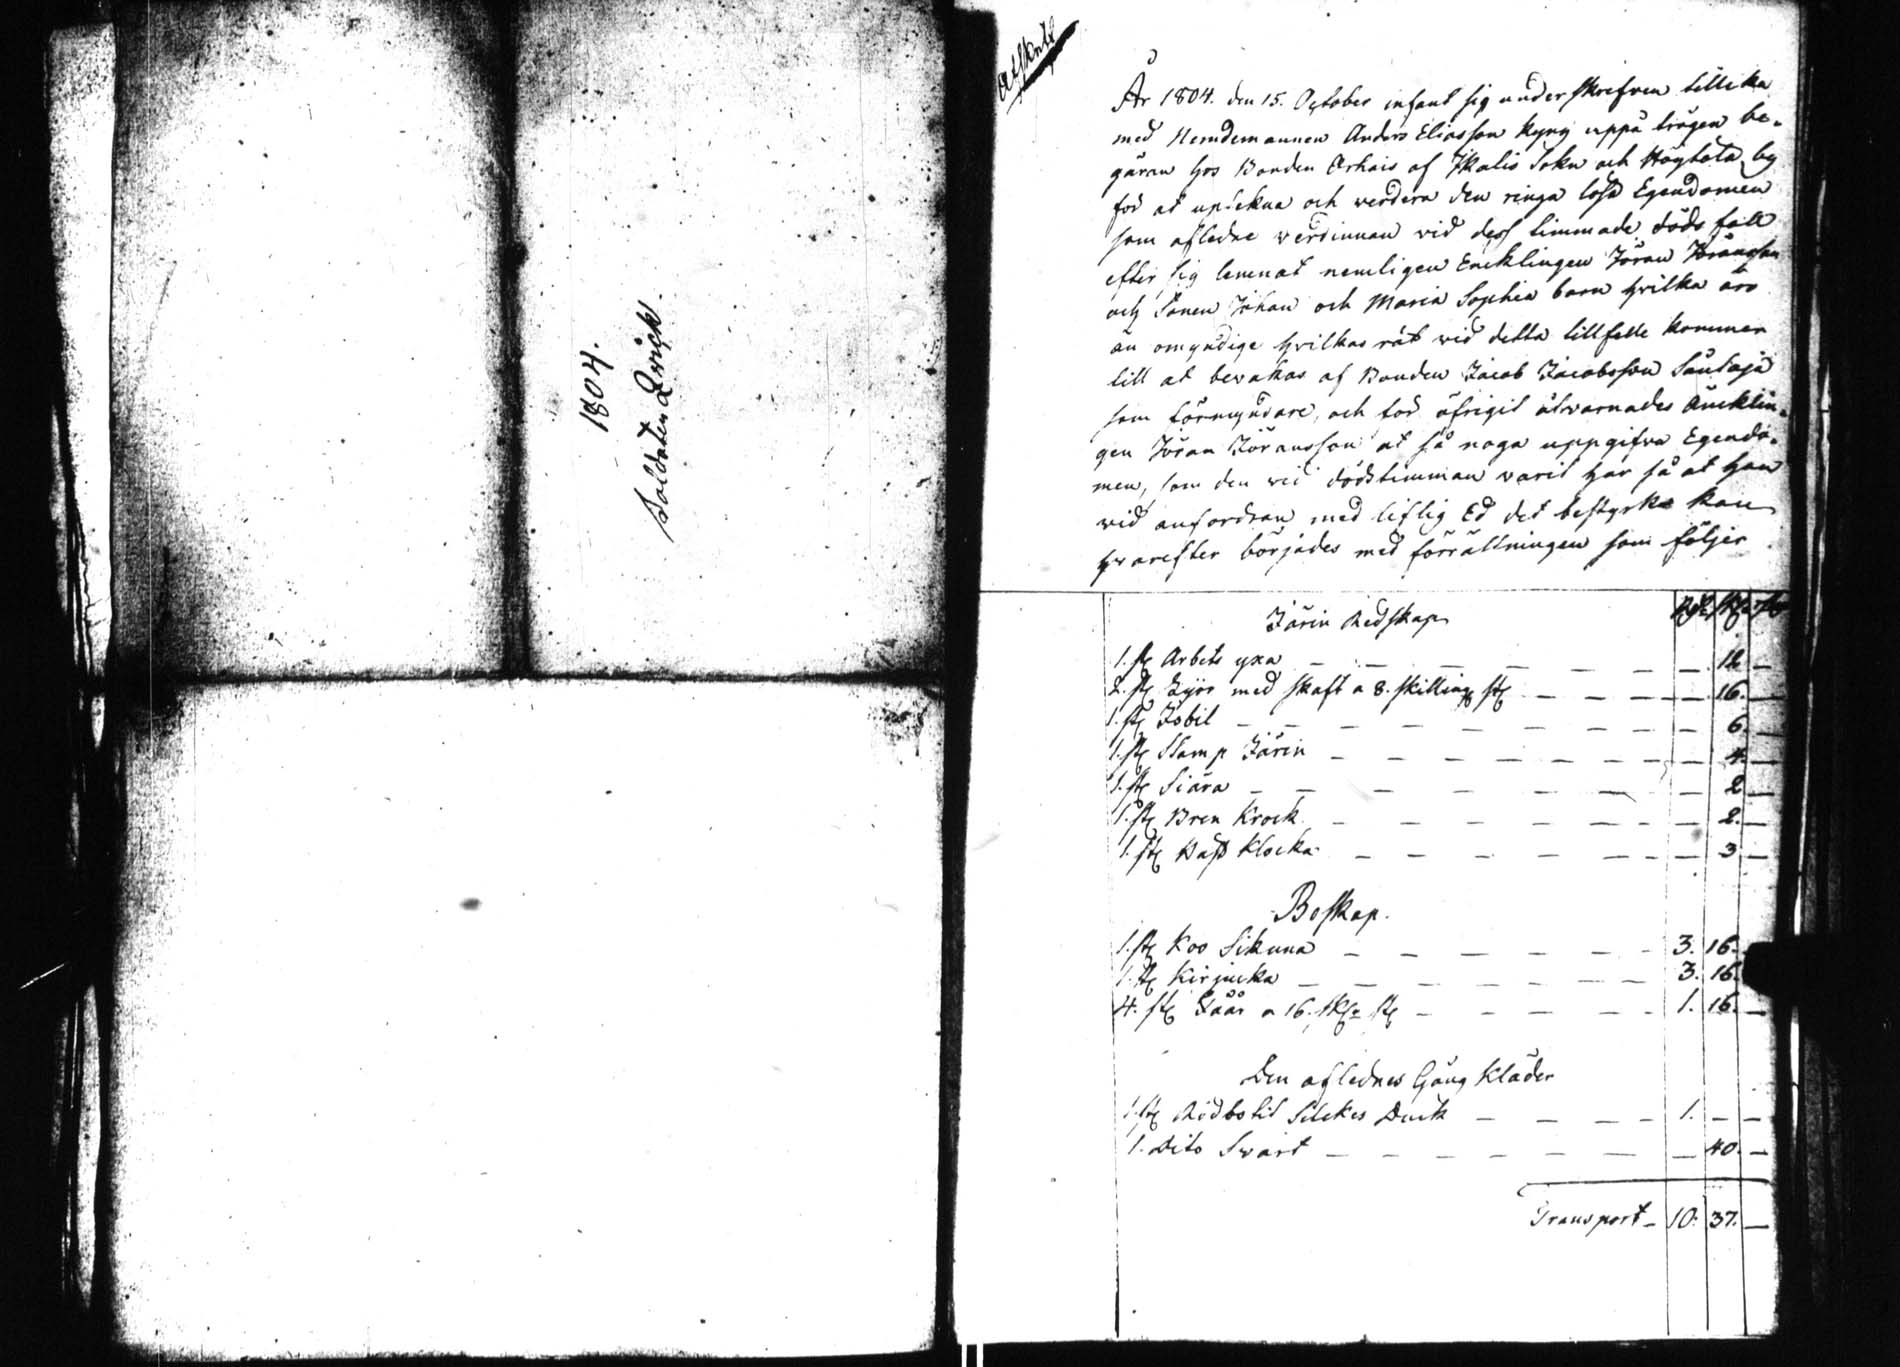 1804.
Soldaten Qvick.
Afskrift
År 1804. den 15. October infant sig underskrefven tillika
med Nemdemannen Anders Eliasson Kyny uppå trägen be-
gäran hos Bonden Arhais af Ikalis Sokn och Höytölä by
för at uptekna och verdera den ringa lösa Egendomen
som aflednе värdinnan vid dess timmade döds fall
efter sig lemnat nemligen Encklingen Jöran Jöransson
och Sonen Johan och Maria Sophia barn hvilka äro
än omyndige hvilkas rät vid detta tillfelle kommer
till at bevakas af Bonden Jacob Jacobsson Säntäjä
som förmyndare, och för öfrigit åtvarnades Äncklin-
gen Jöran Jöransson at så noga uppgifva Egendo-
men, som den vid dödstimman varit har så at han
vid anfordran med liflig Ed det bestyrka kan
hvarefter börjades med förrättningen som följer
Järin Redskap
1. st Arbets yxa — 12 —
2. st Lyor med skaft a 8. skilling st — 16. —
1. st Töbil — 6 —
1. st Stamp Järin — 4 —
1. st Siära — 2 —
1. st Bren Krock — 2. —
1. st Häst Klocka — 3 —
Boskap.
1. st Koo Sikuna — 3. 16. —
1. st Kirjucka — 3. 16. —
4. st Fåår a 16. sk st — 1. 16. —
Den aflednes Gång Kläder
1. st Rödbotit Silckes Duck — 1. — —
1. Dito Svart — 40. —
Transport — 10. 37. —